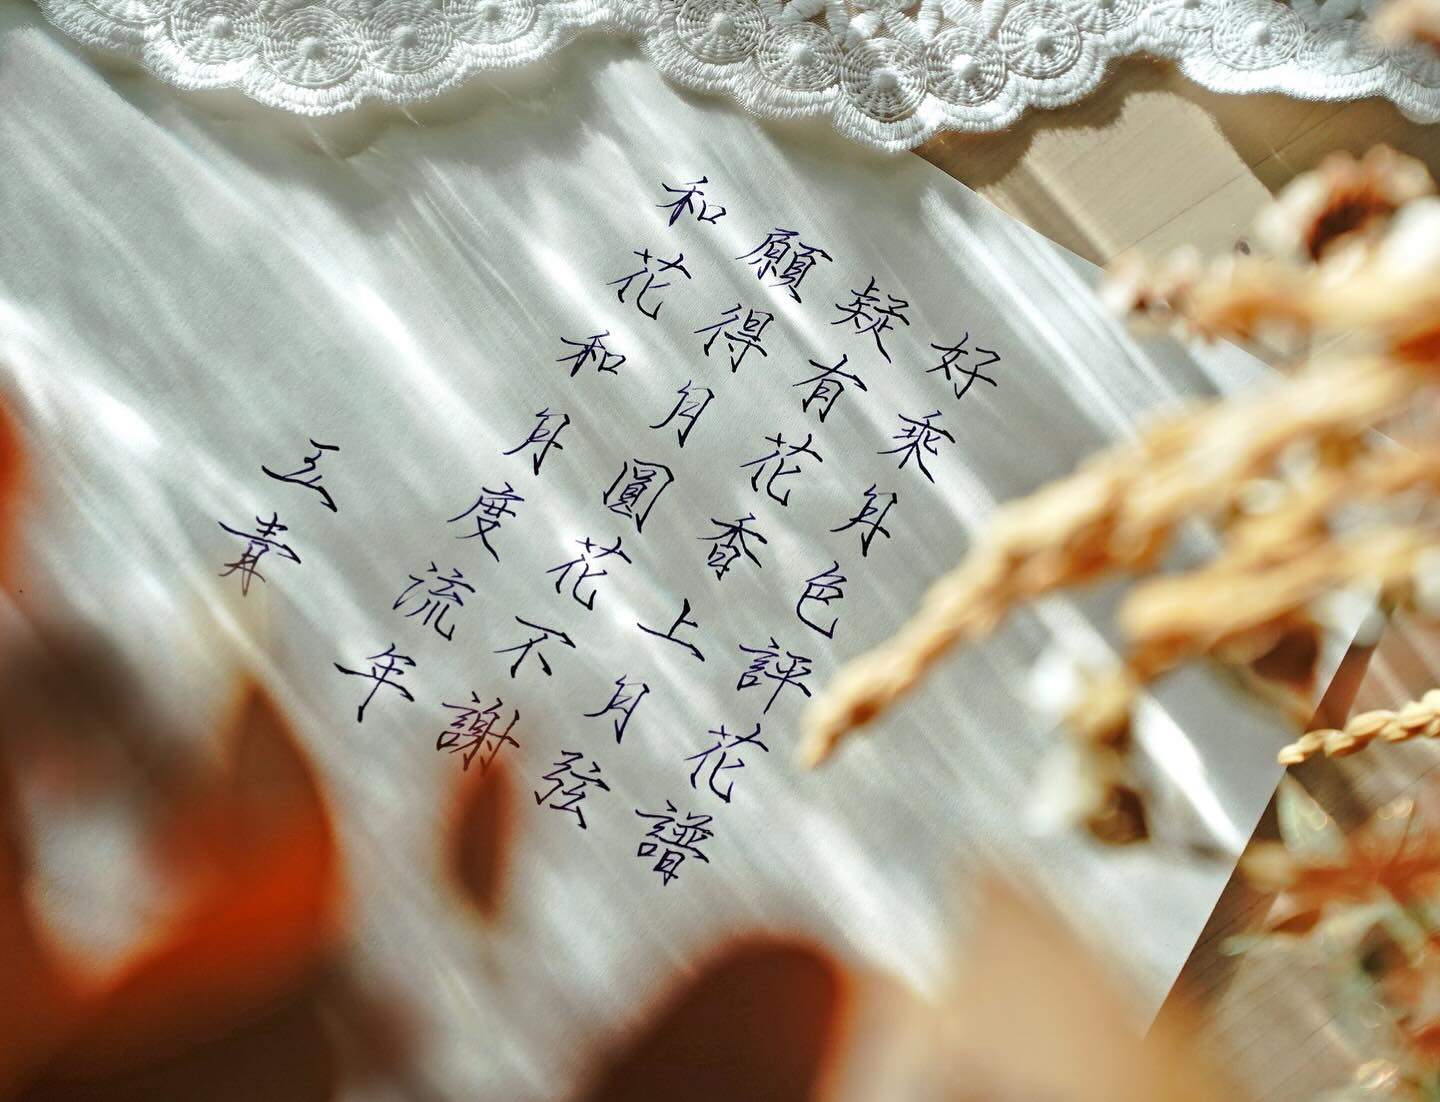 好乘月色評花譜
疑有花香上月弦
願得月圓花不謝
和花和月度流年
玄青